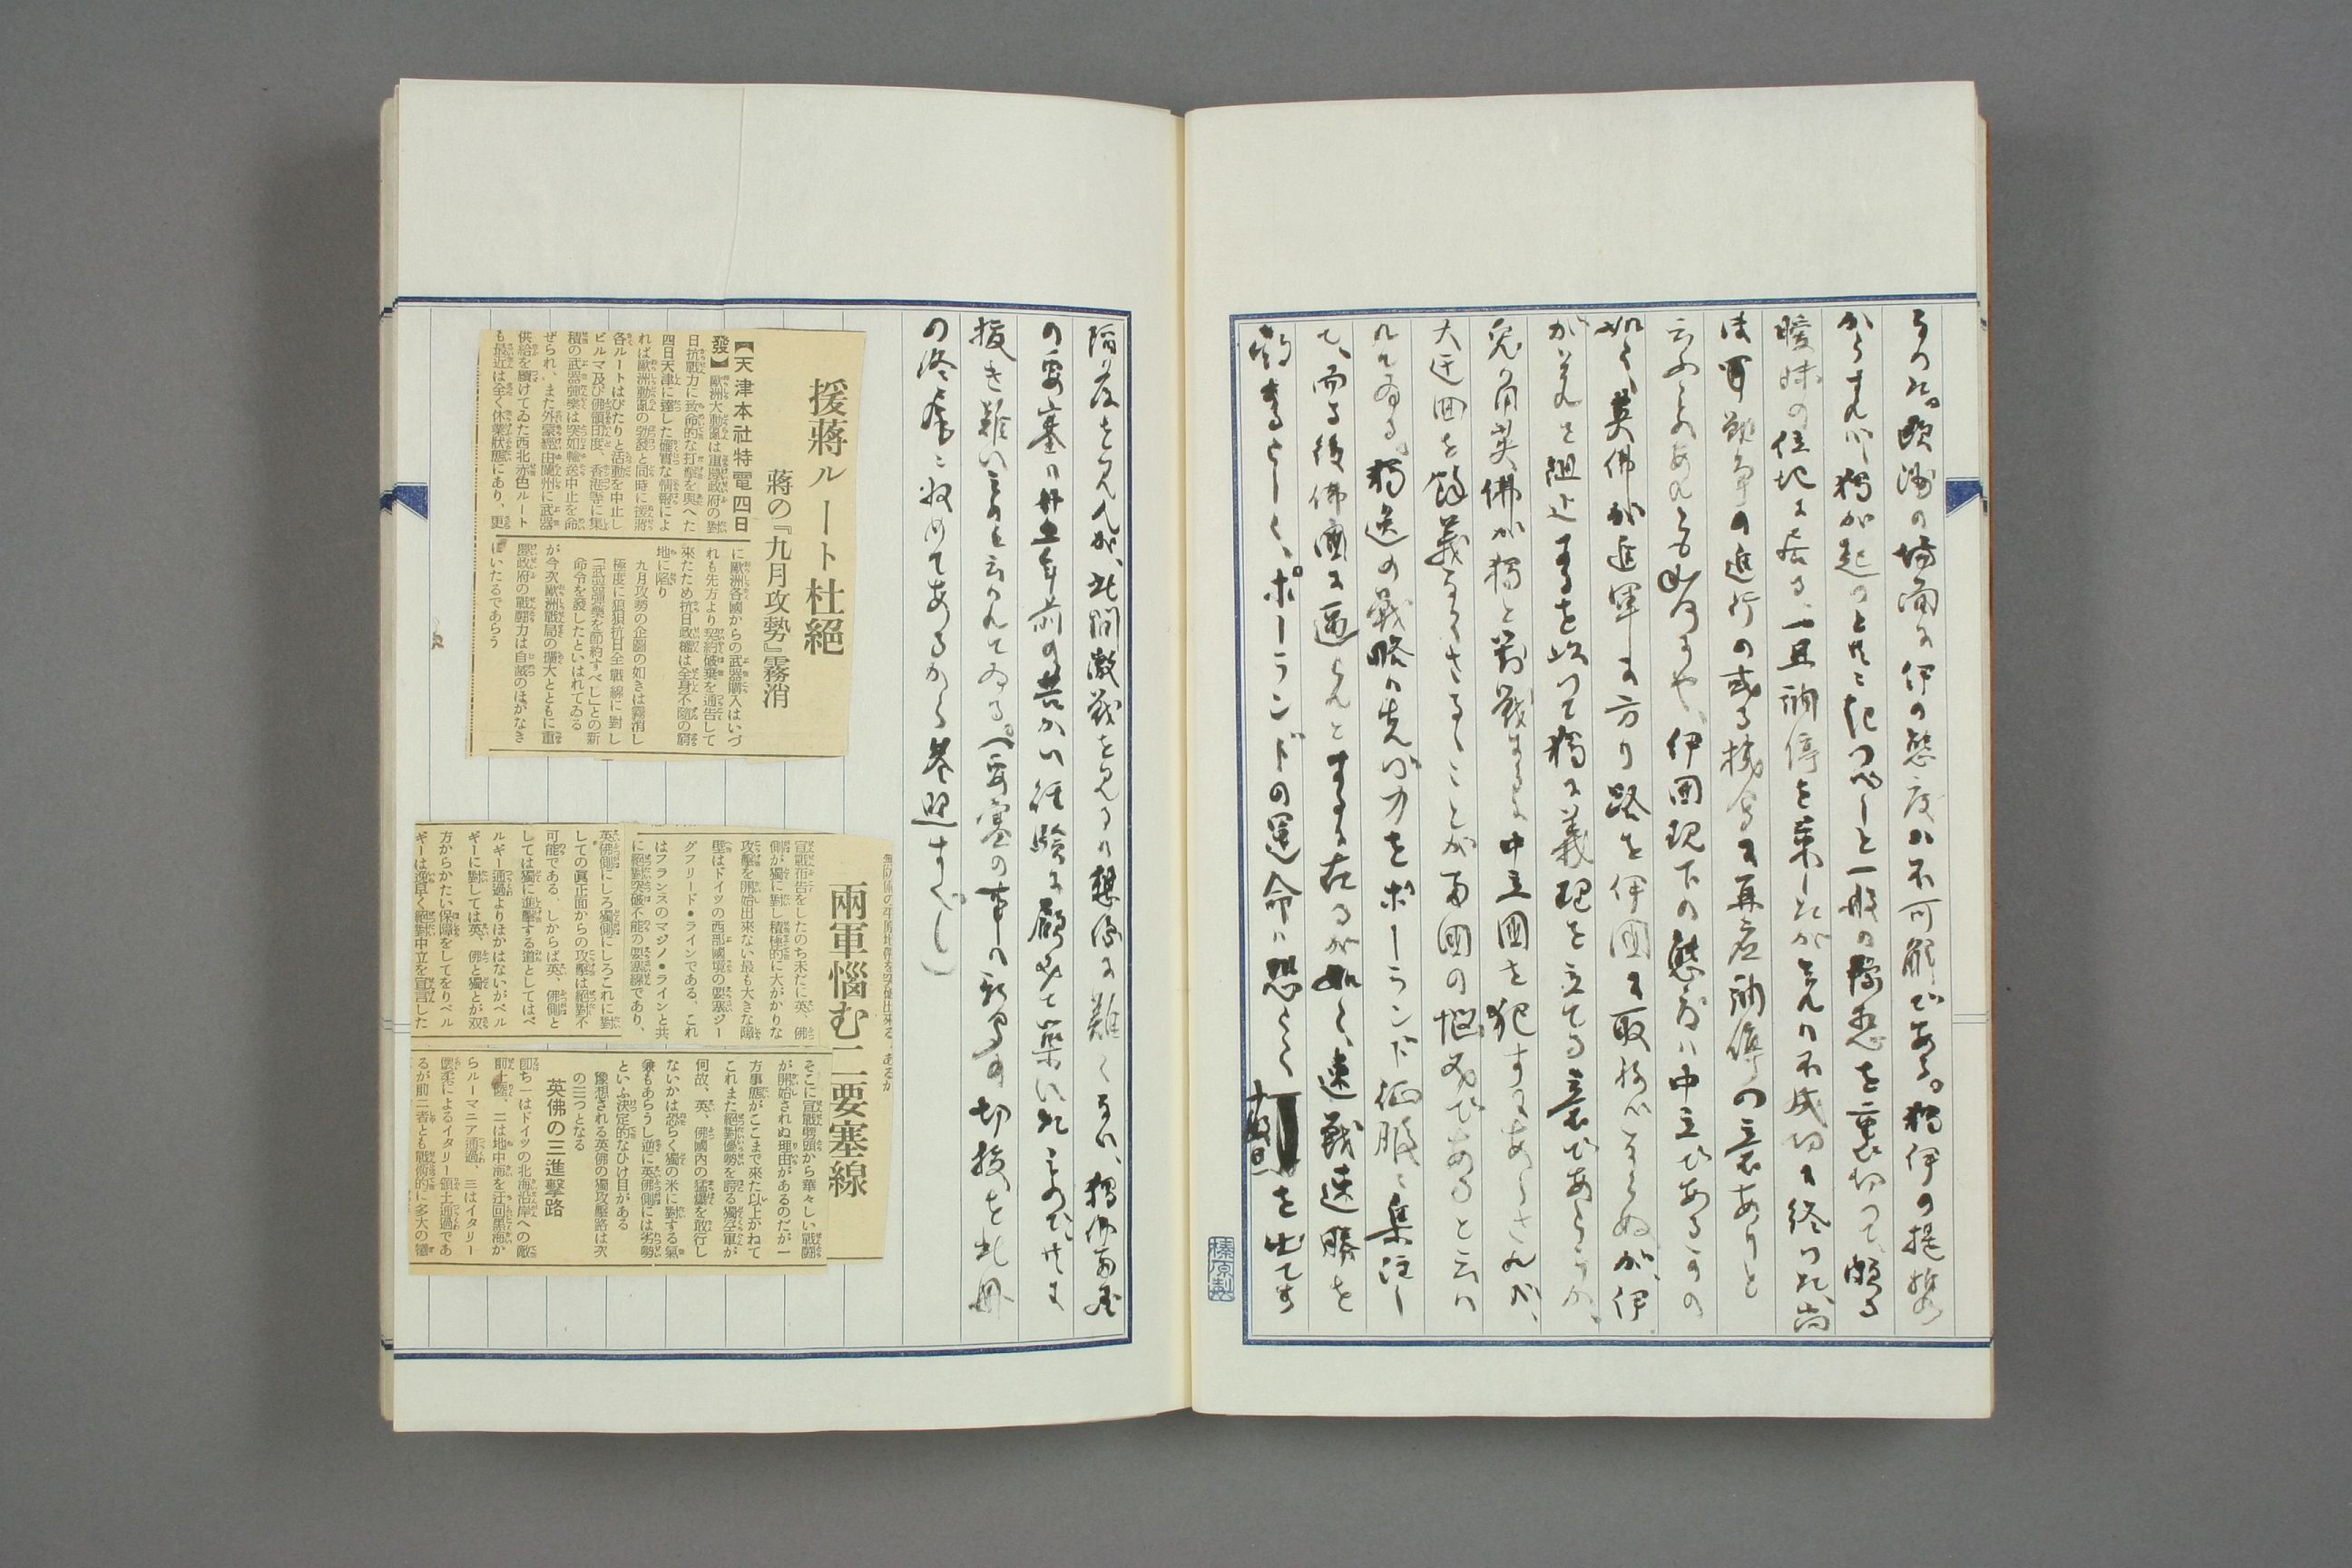 うつた。欧洲の場面に伊の態度ハ不可解である。独伊の提携
からすれハ獨が起つとき共に起つべしと一般の豫想を裏切つて、頗る
曖昧の位地に居る、一旦調停を策したが夫れハ不成功に終つた、尚
ほ戰争の進行の或る機會に再度調停の意ありと
云ふ 伊国現下の態度ハ中立である
如く、英佛が進軍する方り路を伊國に取 ぬが、伊
が夫れを阻止するを以つて獨に義理を立てる意であらうか、
兎に角英、佛が獨と對戦するに中立國を犯す
大迂回を餘義なくさるゝことが両國の悩みであると云ハ
れてゐる。獨逸の戦略ハ先づ力をポーランド征服ニ集注し
て、而る後佛國に逼らんとするに在るが如く、速戦速勝を
ポーランドの運命ハ恐らく 十数日を出てす
陥落を見んが、此間激戦を見るハ想像に難くない、獨佛両
の要塞ハ廿五年前の苦がい経験に顧みて築いたもので、
抜き難いものと云ハれてゐる。(要塞の事ハ新聞の切抜を此冊
の終尾ニ収めてあるから参照すべし)
援蔣ルート杜絕
蔣の『九月攻勢』霧消
【天津本社特電四日
發】歐洲大動亂は重慶政府の對
日抗戰力に致命的な打擊を與へた
四日天津に達した確實な情報によ
れば歐洲動亂の勃發と同時に援蔣
各ルートはぴたりと活動を中止し
ビルマ及び佛領印度、香港等に集
積の武器彈藥は突如輸送中止を命
ぜられ、また外蒙經由蘭州に武器
供給を續けてゐた西北赤色ルート
も最近は全く休業狀態にあり、更
に歐洲各國からの武器購入はいづ
れも先方より契約破棄を通告して
來たため抗日政權は全身不隨の窮
地に陷り
九月攻勢の企圖の如きは霧消し
極度に狼狽抗日全戰線に對し
「武器彈藥を節約すべし」との新
命令を發したといはれてゐる
が今次歐洲戰局の擴大とともに重
慶政府の戰鬪力は自滅のほかなき
にいたるであらう
兩軍惱む二要塞線
宣戰布告をしたのち未だに英、佛
側が獨に對し積極的に大がかりな
攻擊を開始出來ない最も大きな障
壁はドイツの西部國境の要塞ジー
グフリード・ラインである、これ
はフランスのマジノ・ラインと共
に絕對突破不能の要塞線であり、
英佛側にしろ獨側にしろこれに對
しての眞正面からの攻擊は絕對不
可能である、しからば英、佛側と
しては獨に進擊する道としてはベ
ルギー通過よりほかはないがベル
ギーに對しては英、佛と獨とが双
方からかたい保障をしてをりベル
ギーは逸早く絕對中立を宣言した
そこに宣戰劈頭から華々しい戰鬪
が開始されぬ理由があるのだが一
方事態がここまで來た以上かねて
これまた絕對優勢を誇る獨空軍が
何故、英、佛國內の猛爆を敢行し
ないかは恐らく獨の米に對する氣
兼もあらうし逆に英佛側には劣勢
といふ決定的なひけ目がある
豫想される英佛の獨攻擊路は次
の三つとなる
英佛の三進擊路
卽ち一はドイツの北海沿岸への敵
前上陸、二は地中海を迂回黑海か
らルーマニア通過、三はイタリー
懷柔によるイタリー領土通過であ
るが前二者とも戰術的に多大の犧
榛原製